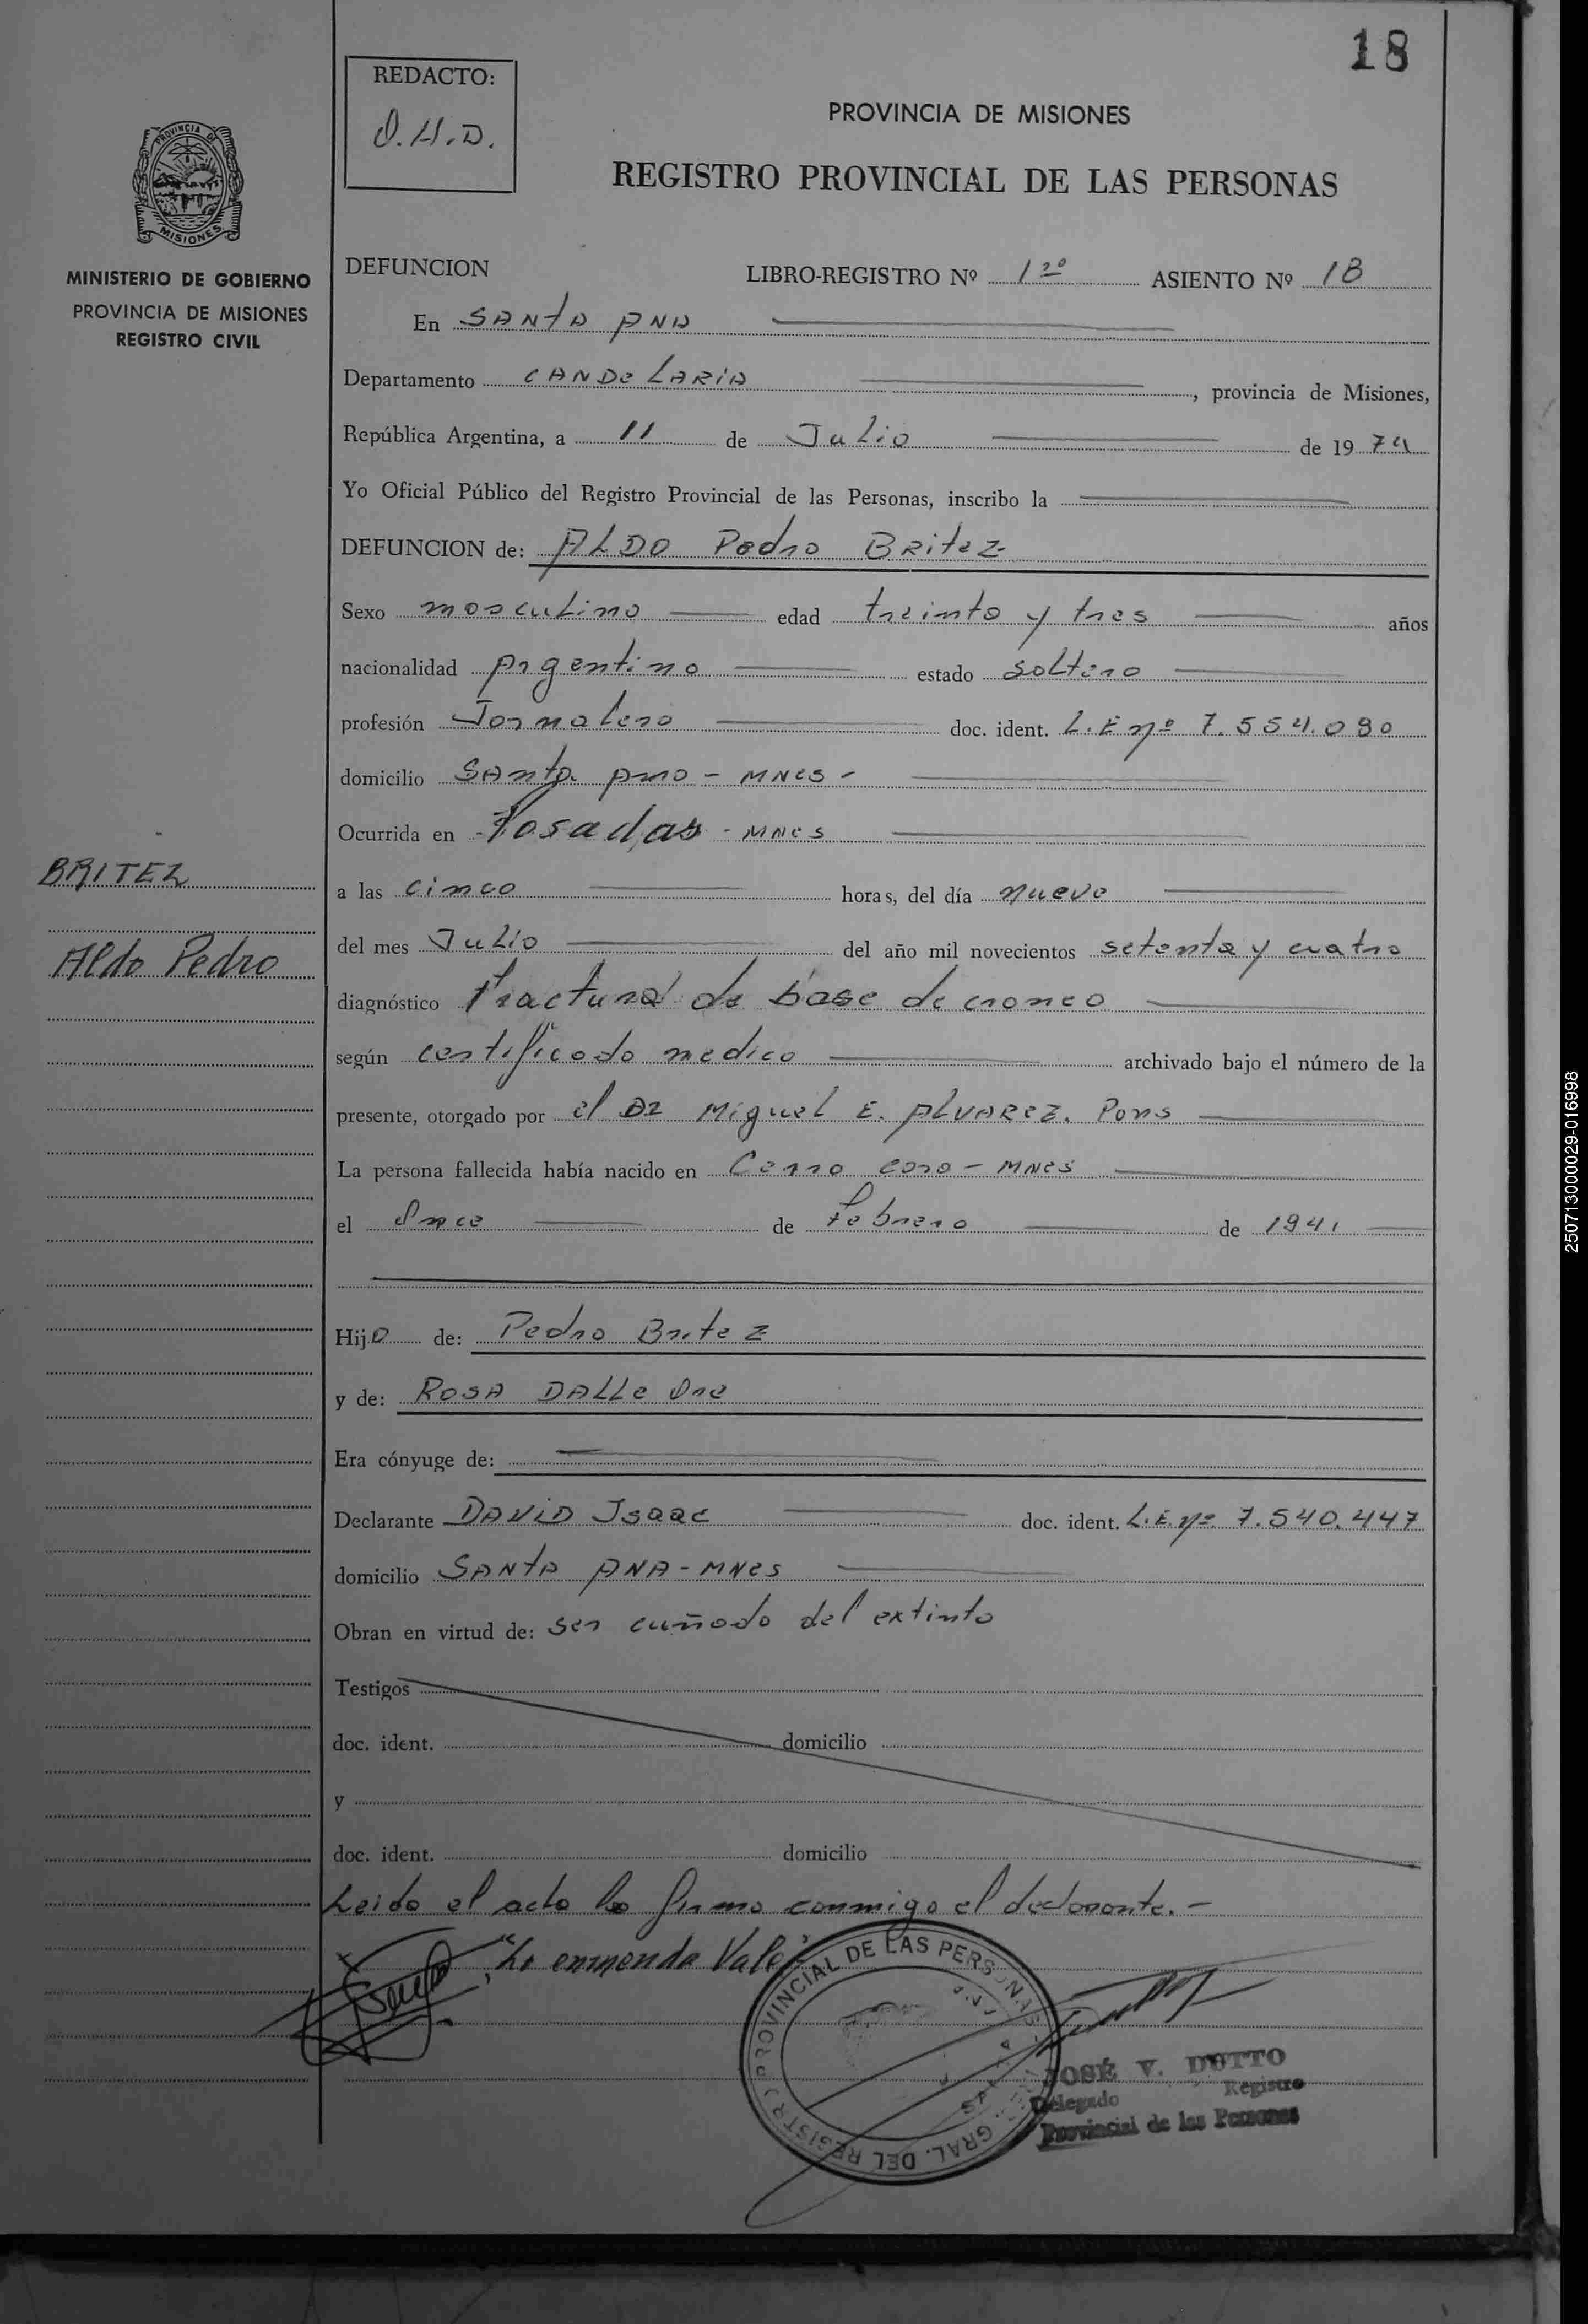 18
REDACTO:
O.H.D.
PROVINCIA DE MISIONES
REGISTRO PROVINCIAL DE LAS PERSONAS
PROVINCIA DE
MISIONES
MINISTERIO DE GOBIERNO
PROVINCIA DE MISIONES
REGISTRO CIVIL
DEFUNCION LIBRO-REGISTRO Nº 1ro ASIENTO Nº 18
En SANTA ANA
Departamento CANDELARIA, provincia de Misiones,
República Argentina, a 11 de Julio de 1974
Yo Oficial Público del Registro Provincial de las Personas, inscribo la
DEFUNCION de: ALDO Pedro BRitez
Sexo masculino edad treinta y tres años
nacionalidad Argentino estado soltero
profesión Jornalero doc. ident. L.E nº 7.554.090
domicilio SAnta Ana - MNes -
Ocurrida en - Posadas - MNes
BRITEZ
a las cinco horas, del día nueve
Aldo Pedro
del mes Julio del año mil novecientos setenta y cuatro
diagnóstico Fractura de base de craneo
según certificado medico archivado bajo el número de la
presente, otorgado por el Dr Miguel E. ALVAREZ. Pons
La persona fallecida había nacido en Cerro Cora - MNes
el Once de Febrero de 1941
Hijo de: Pedro Britez
y de: ROSA DALLe Ore
Era cónyuge de:
Declarante DAViD Isaac doc. ident. L.E.nº. 7.540.447
domicilio SANTA ANA - MNes
Obran en virtud de: ser cuñado del extinto
Testigos
doc. ident. domicilio
y
doc. ident. domicilio
Leido el acta la firma conmigo el declarante. -
"La enmienda Vale"
PROVINCIAL DE LAS PERSONAS
GRAL. DEL REGISTRO
JOSÉ V. DUTTO
Delegado Registro
Provincial de las Personas
250713000029-016998